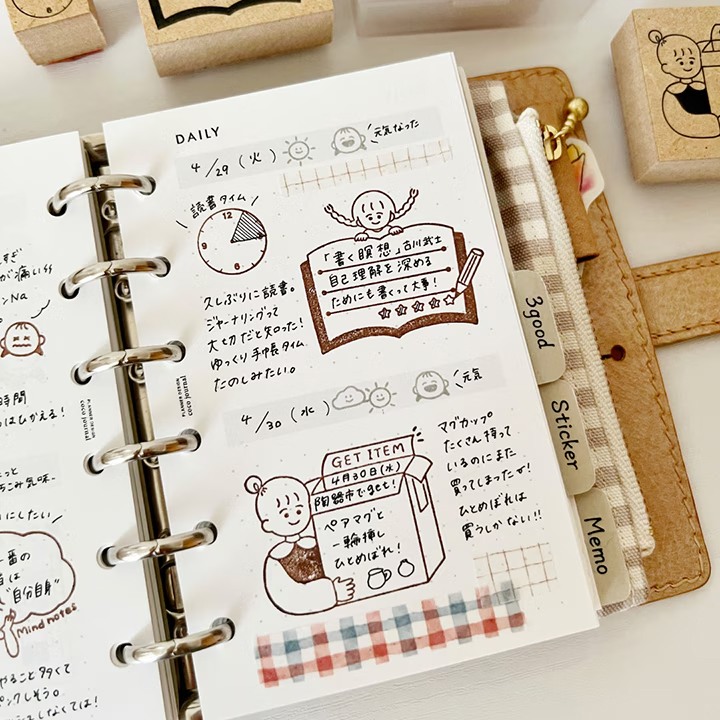 すぎ
が痛い
ンNa
時間
はひかえる!
っと
ちこみ気味-
にしたい
一番の
は
"自分自身"
Mind notes
やること多くて
ンクしそう。
しなくては!
coco journal
DAILY
4/29 (火)
元気なった
読書タイム
12
3
6
9
「書く瞑想」古川武士
自己理解を深める
ためにも書くって大事!
久しぶりに読書。
ジャーナリングって
大切だと知った!
ゆっくり手帳タイム
たのしみたい。
coco journal
4/30 (水)
元気
GET ITEM
4月30日(水)
陶器市でget!
ペアマグと
一輪挿し
ひとめぼれ!
マグカップ
たくさん持って
いるのにまた
買ってしまったで!
ひとめぼれは
買うしかない!!
3good
Sticker
Memo